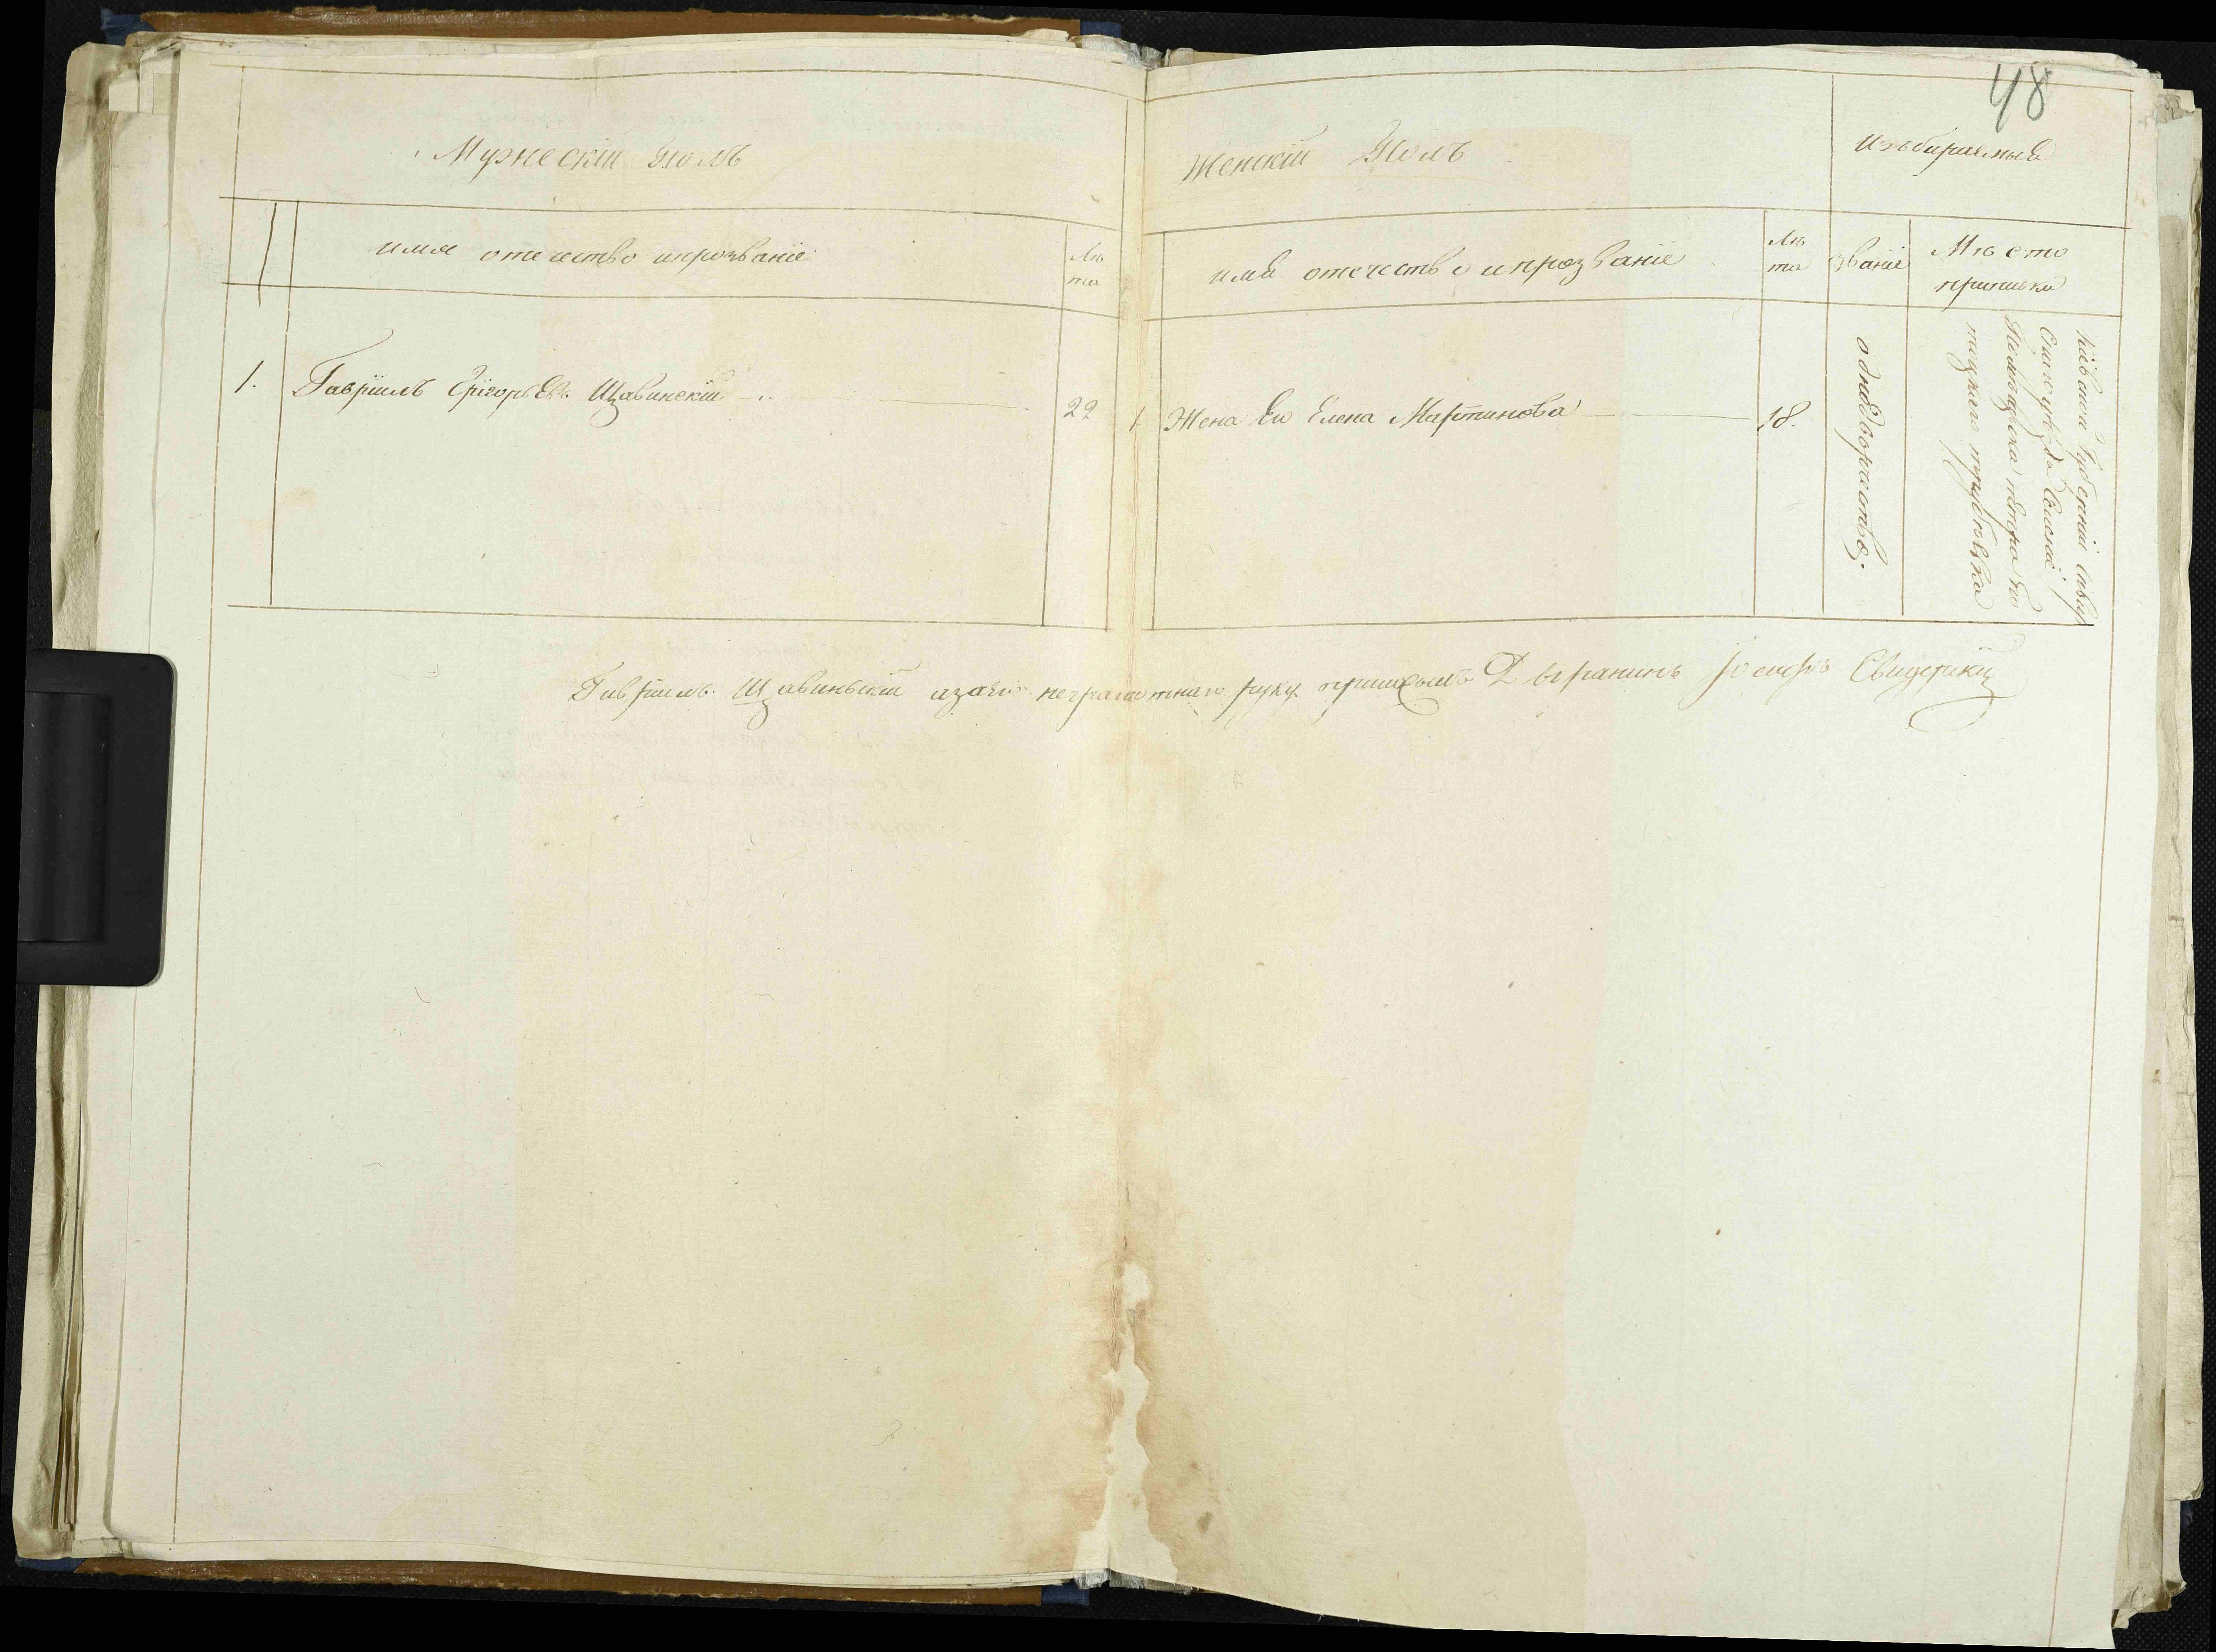 48
Мужескій Полъ
Женскій Полъ
Избираемые
имя отечество ипрозваніе
Лѣ
та
имя отечество ипрозваніе
Лѣ
та
званіе
Мѣсто
приписки
1. Гавріилъ Григорьевъ Щавинскій 22
1. Жена Его Елена Мартинова 18.
однодворчество.
Кіевской Губерніи
уѣзда
Гавріилъ Щавиньскій азаего неграмотнаго руку приложылъ Дворанинъ Іосифъ Свидерскій